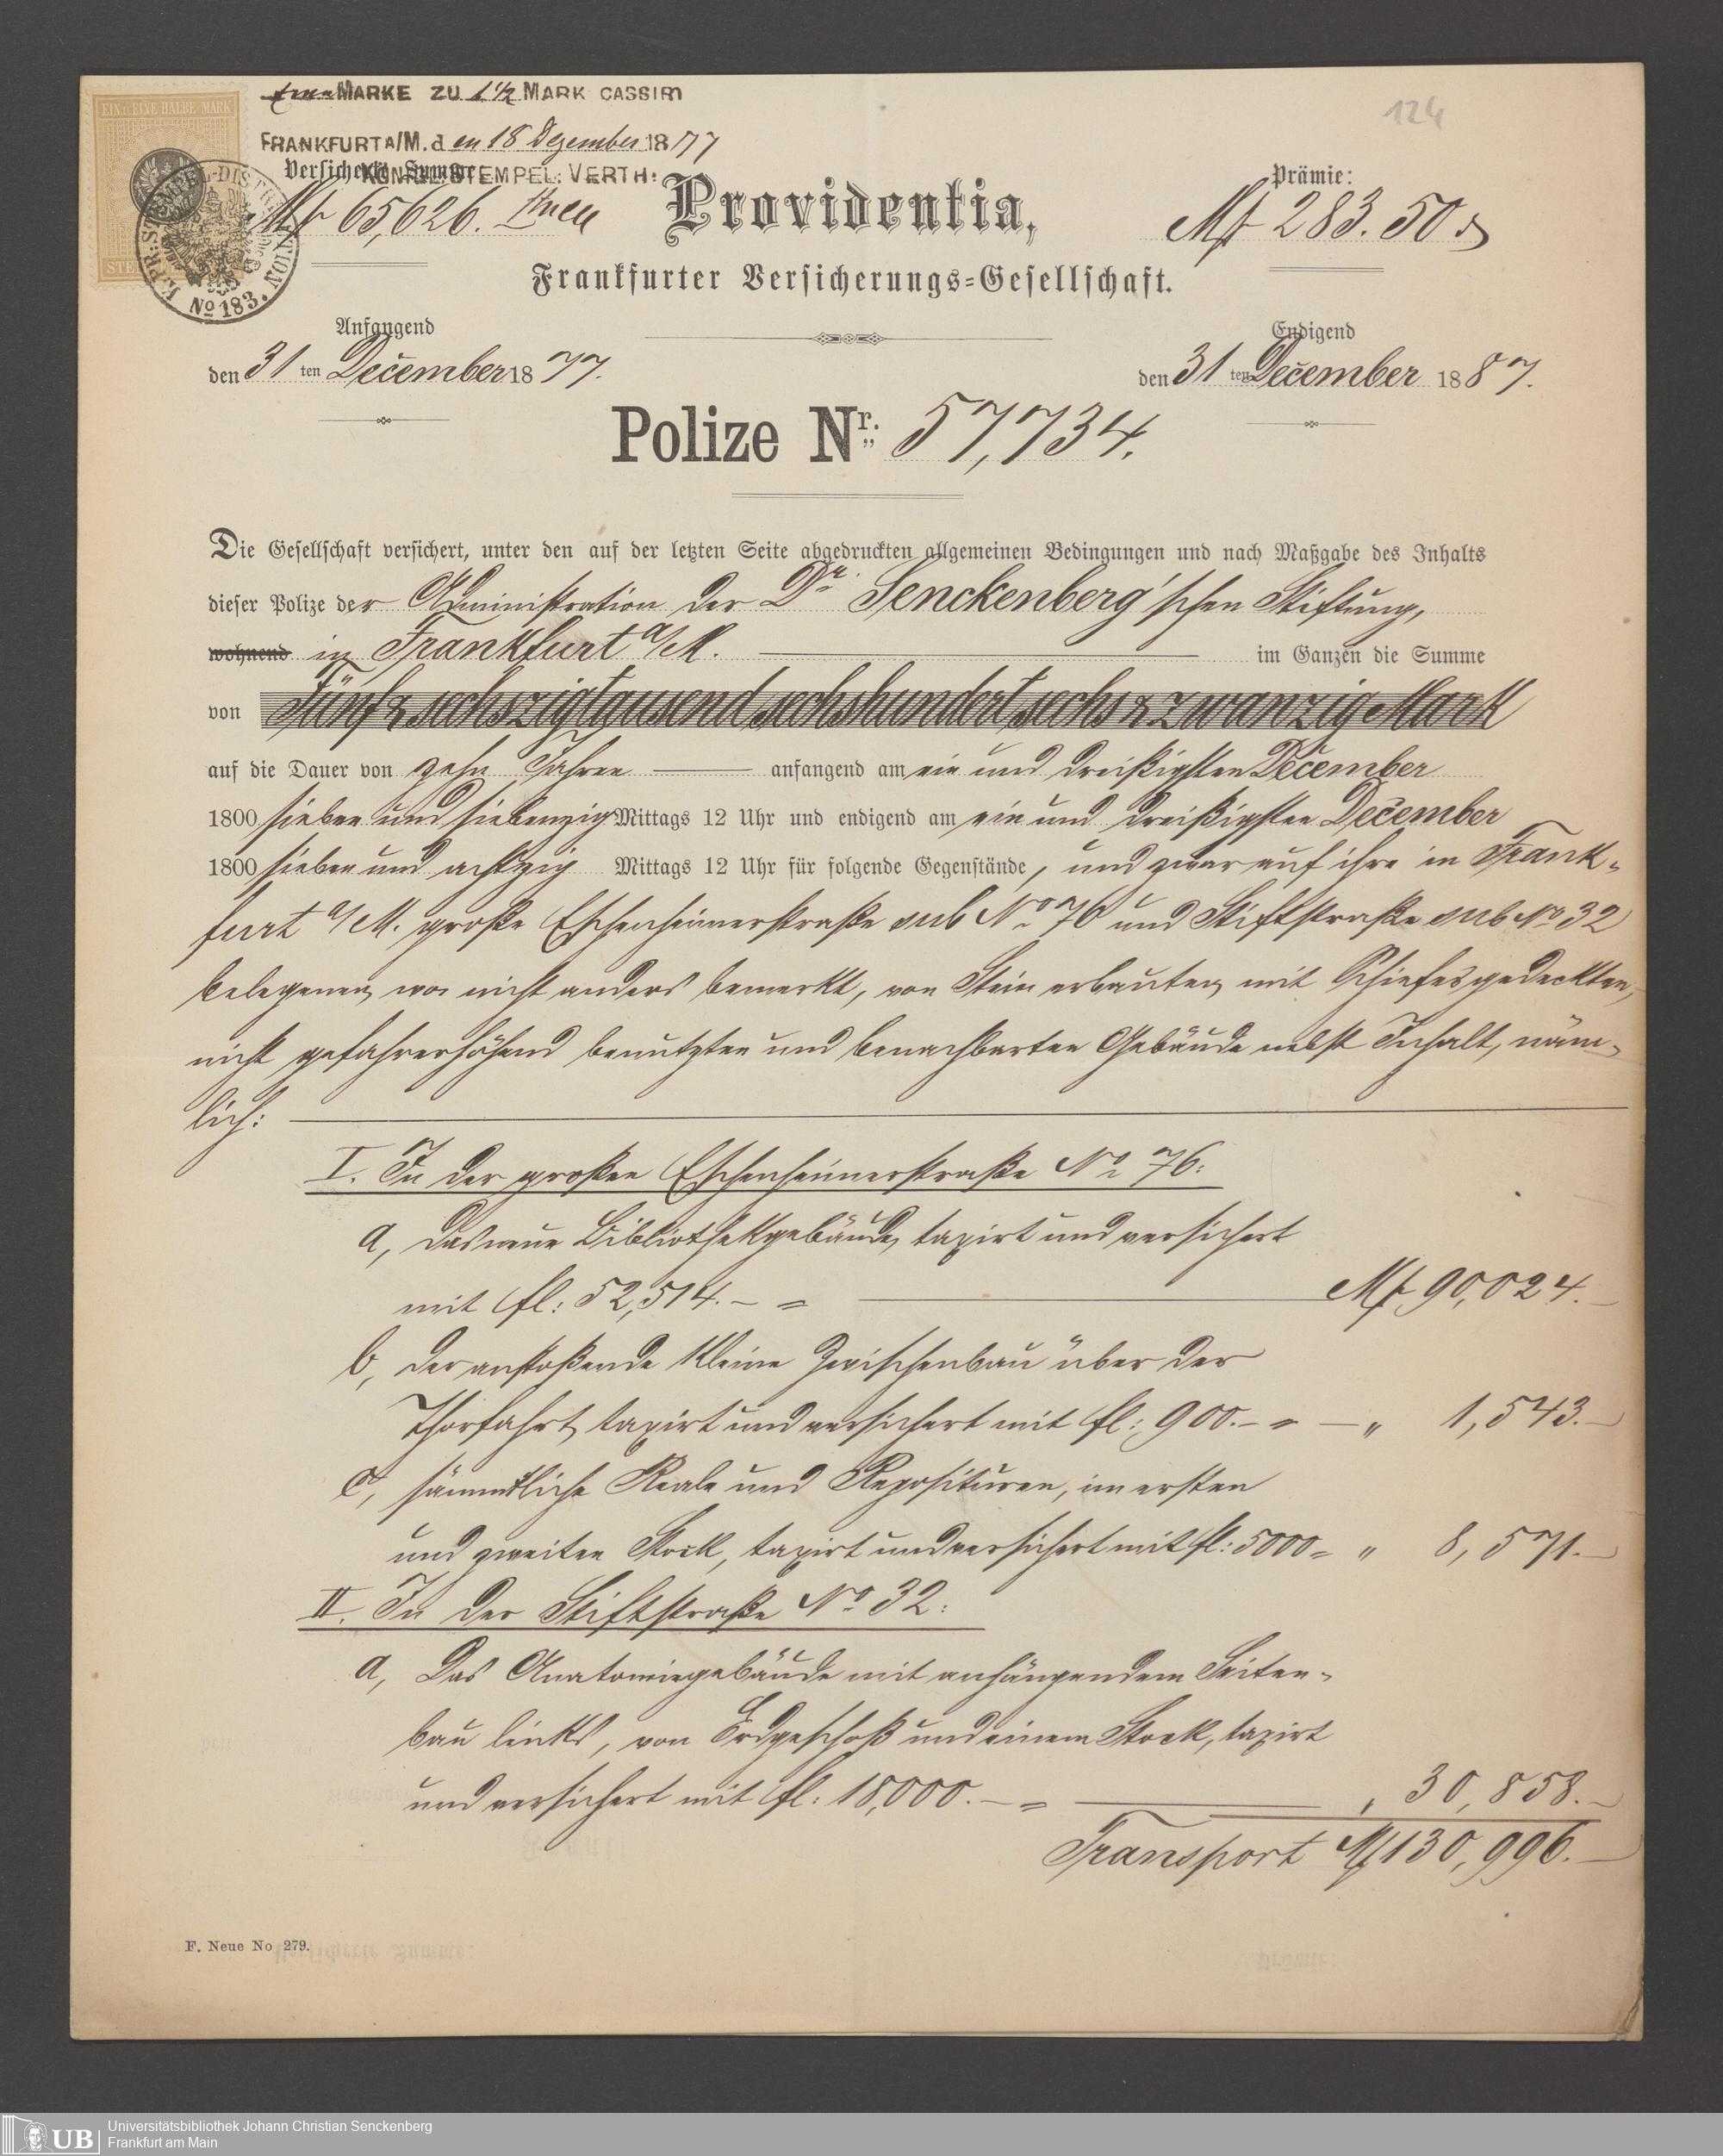 124
MARKE ZU 1 ½ MARK CASSIRT
FRANKFURT A/M. den 18 Dezember 1877
KÖNIGL: STEMPEL: VERTH:
EIN U. EINE HALBE MARK
K. PR: STEMPEL-DISTRIBUTION
No 183.
Versicherte Summe
Mk 65,626.
Providentia,
Prämie:
Mk 283.50 ₰
Frankfurter Versicherungs-Gesellschaft.
Anfangend
den 31 ten December 1877.
Endigend
den 31 ten December 1887.
Polize Nr. 57,734.
Die Gesellschaft versichert, unter den auf der letzten Seite abgedruckten allgemeinen Bedingungen und nach Maßgabe des Inhalts
dieser Polize der Administration der Dr. Senckenberg'schen Stiftung,
wohnend in Frankfurt a/M. im Ganzen die Summe
von Fünf & sechszigtausend sechshundert sechs & zwanzig Mark
auf die Dauer von zehn Jahren anfangend am ein und dreißigsten December
1800 sieben und siebenzig Mittags 12 Uhr und endigend am ein und dreißigsten December
1800 sieben und achtzig Mittags 12 Uhr für folgende Gegenstände, und zwar auf ihre in Frank-
furt a/M. große Eschenheimerstraße sub No 76 und Stiftstraße sub No 32
belegenen, wo nicht anders bemerkt, von Stein erbauten, mit Schiefer gedeckten,
nicht gefahrerhöhend benutzten und benachbarten Gebäude nebst Inhalt, näm-
lich:
I. In der großen Eschenheimerstraße No 76:
a, das neue Bibliothekgebäude, taxirt und versichert
mit fl: 52,514.– = Mk 90,024.–
b, der anstoßende kleine Zwischenbau über der
Thorfahrt, taxirt und versichert mit fl: 900.– = – " 1,543.–
c, sämmtliche Reale und Reposituren, im ersten
und zweiten Stock, taxirt und versichert mit fl: 5000 = " 8,571.–
II. In der Stiftstraße No 32:
a, Das Anatomiegebäude mit anhängendem Seiten-
bau links, von Erdgeschoß und einem Stock, taxirt
und versichert mit fl: 18,000.– = " 30,858.–
Transport Mk 130,996.–
F. Neue No 279.
UB
Universitätsbibliothek Johann Christian Senckenberg
Frankfurt am Main